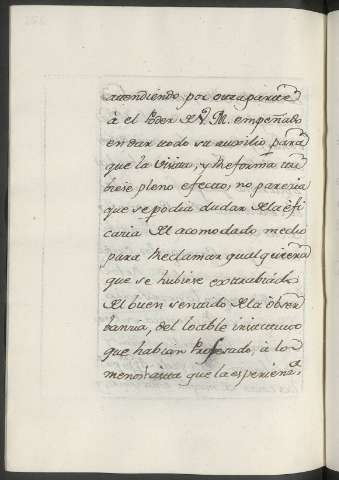 atendiendo por otra parte
à el Poder de V. M. empeñado
en dar todo su auxilio para
que la visita, y Reforma tu
biese pleno efecto, no parecia
que se podia dudar de la efi
cacia del acomodado medio
para Reclamar qualquiera
que se hubiese extrabiado
del buen sentido de la obser
bancia, del loable instituto
que habian Profesado, à lo
menos asta que la esperienc.ª